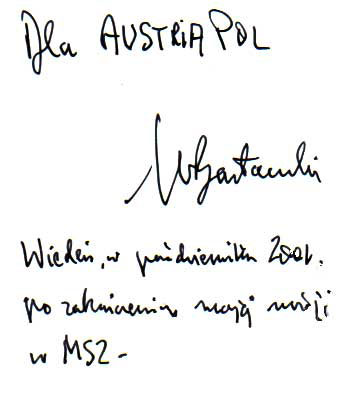 Dla AUSTRIA POL
W Bartoszewski
Wiedeń, w październiku 2001.
po zakończeniu mojej misji
w MSZ -